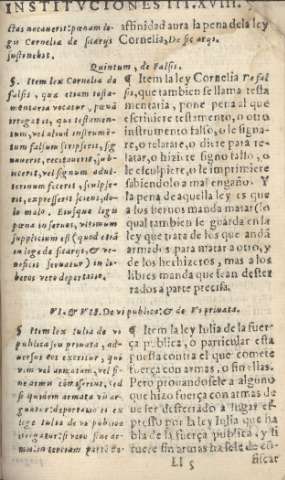 INSTITVCIONES III.XVIII.
ctas necauerit: pœnam le-
gis Corneliæ de sicarijs
instruebat.
affinidad aura la pena dela ley
Cornelia, De sicarijs.
Quintum, de Falsis.
§. Item lex Cornelia de
falsis, quæ etiam testa-
mentaria vocatur, pœnã
irrogat ei, qui testamen-
tum, vel aliud instrumẽ-
tum falsum scripserit, sig
nauerit, recitauerit, sub-
iecerit, vel signum adul-
terinum fecerit, sculpse-
rit, expresserit sciens, do-
lo malo. Eiusque legis
pœna in seruos, vltimum
supplicium est (quod etiã
in lege de sicarijs, & ve-
neficis seruatur) in li-
beros vero deportatio.
¶ Item la ley Cornelia De fal
sis, que tambien se llama testa
mentaria, pone pena al que
escriuiere testimento, o otro
instrumento falso, o le signa-
re, o relatare, o diere para re-
latar, o hiziere signo falso, o
le esculpiere, o le imprimiere
sabiendolo a mal engaño. Y
la pena de aquella ley es que
a los sieruos manda matar (lo
qual tambien se guarda en la
ley que trata de los que andã
armados para matar a otro, y
de los hechizeros, mas a los
libres manda que sean dester
rados a parte precisa.
VI. & VII. De vi publica: & de Vi priuata.
§ Item lex Iulia de vi
publica seu priuata, ad-
uersus eos exoritur, qui
vim vel armatam, vel si-
ne armis commiserint, sed
si quidem armata vis ar-
guatur: deportatio ei ex
lege Iulia de vi publica
irrogatur: si vero sine ar-
mis: in tertiam partẽ bo-
¶ Item la ley Iulia de la fuer-
ça publica, o particular esta
puesta contra el que comete
fuerça con armas, o sin ellas.
Pero prouandosele a alguno
que hizo fuerça con armas de
ue ser desterrado a lugar ex-
presso por la ley Iulia que ha
bla de la fuerça publica, y si
fuere sin armas ha sele de con-
Ll 5
fiscar